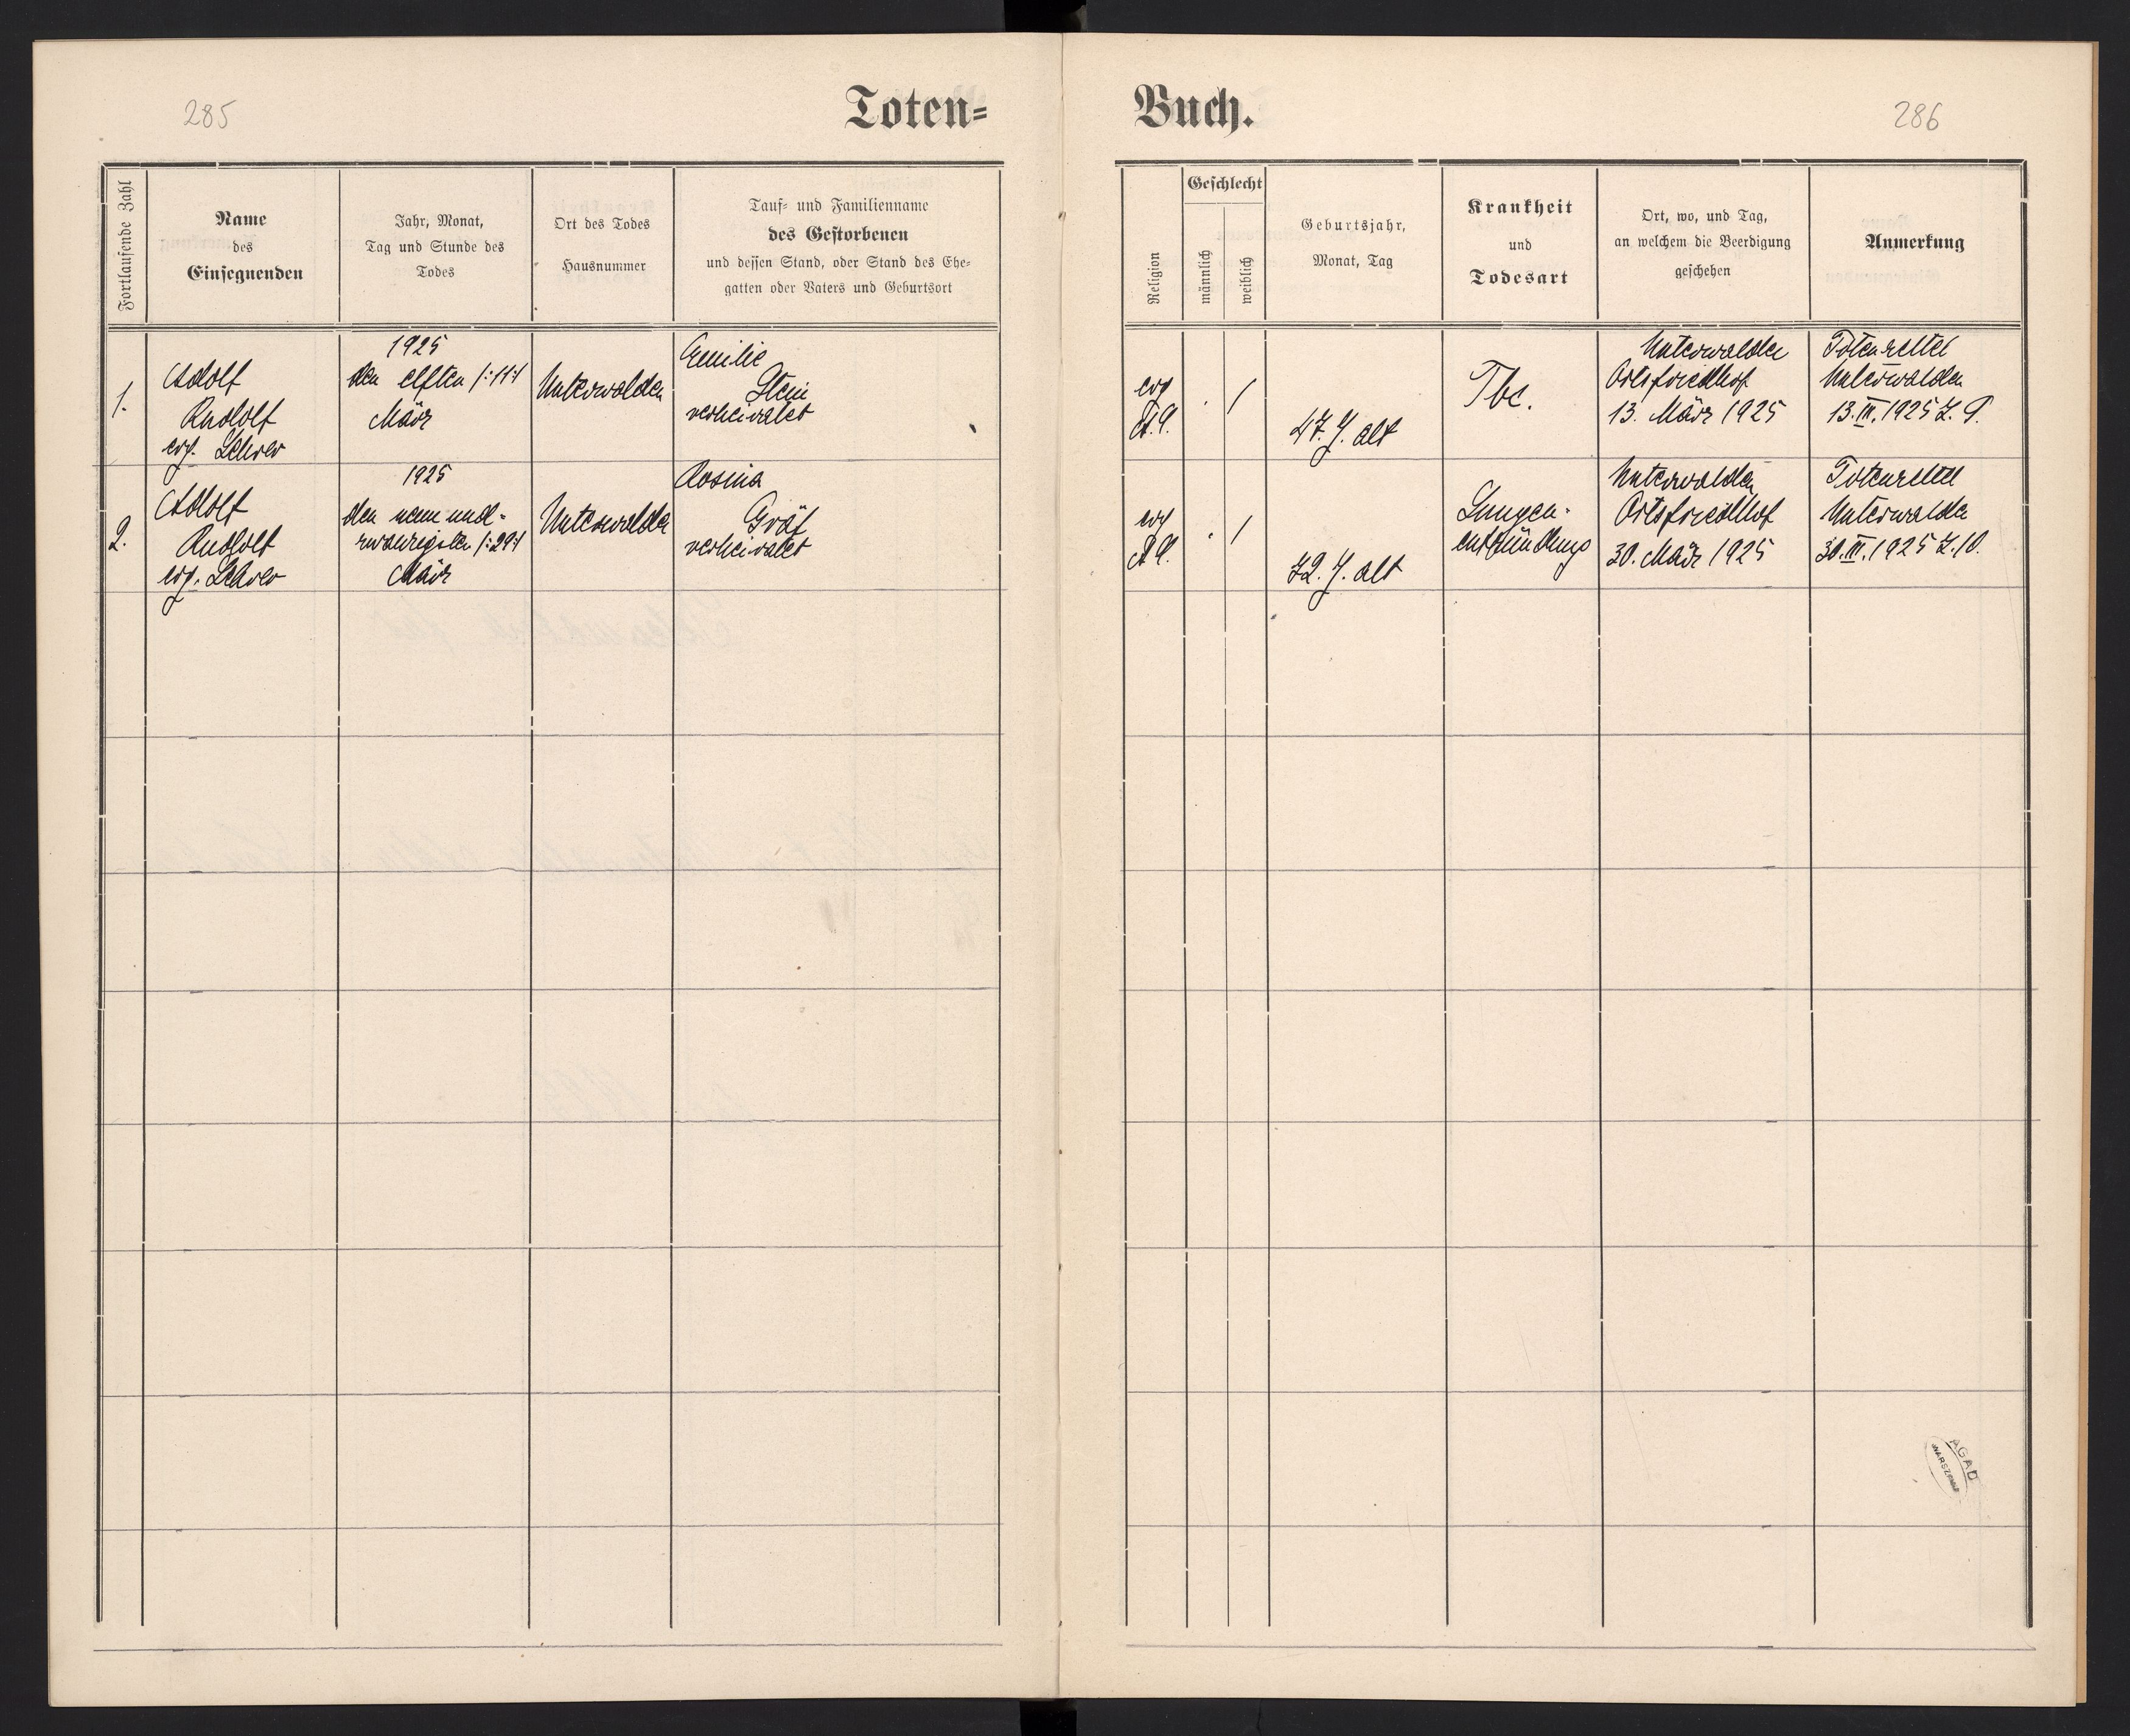 285
Toten=
Buch.
286
Fortlaufende Zahl
Name
des
Einsegnenden
Jahr, Monat,
Tag und Stunde des
Todes
Ort des Todes
Hausnummer
Tauf= und Familienname
des Gestorbenen
und dessen Stand, oder Stand des Ehe=
gatten oder Vaters und Geburtsort
Religion
Geschlecht
männlich
weiblich
Geburtsjahr,
Monat, Tag
Krankheit
und
Todesart
Ort, wo, und Tag,
an welchem die Beerdigung
geschehen
Anmerkung
1.
Adolf
Rudolf
evg. Lehrer
1925
den elften /:11:/
März
Unterwalden
Emilie
Stein
verheiratet
evg
A.C.
. /
47. J. alt
Tbc.
Unterwalden
Ortsfriedhof
13. März 1925
Totenzettel
Unterwalden
13.III.1925 Z. 9.
2.
Adolf
Rudolf
evg. Lehrer
1925
den neun und-
zwanzigsten /:29:/
März
Unterwalden
Rosina
Gräf
verheiratet
evg
A.C.
. /
72. J. alt
Lungen-
entzündung
Unterwalden
Ortsfriedhof
30. März 1925
Totenzettel
Unterwalden
30.III.1925 Z.10.
AGAD
WARSZAWA